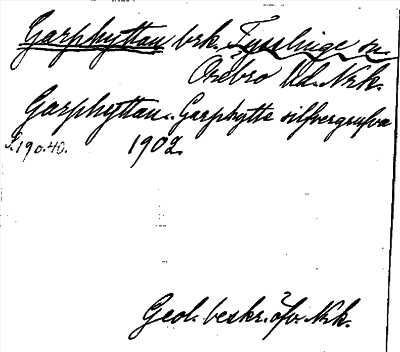 Garphyttan brk. Tysslinge sn.
Örebro hd. Nrk.
Garphyttan. Garphytte silfvergrufva
S. 190. 40. 1902.
Geol. beskr. öfv. Nrk.